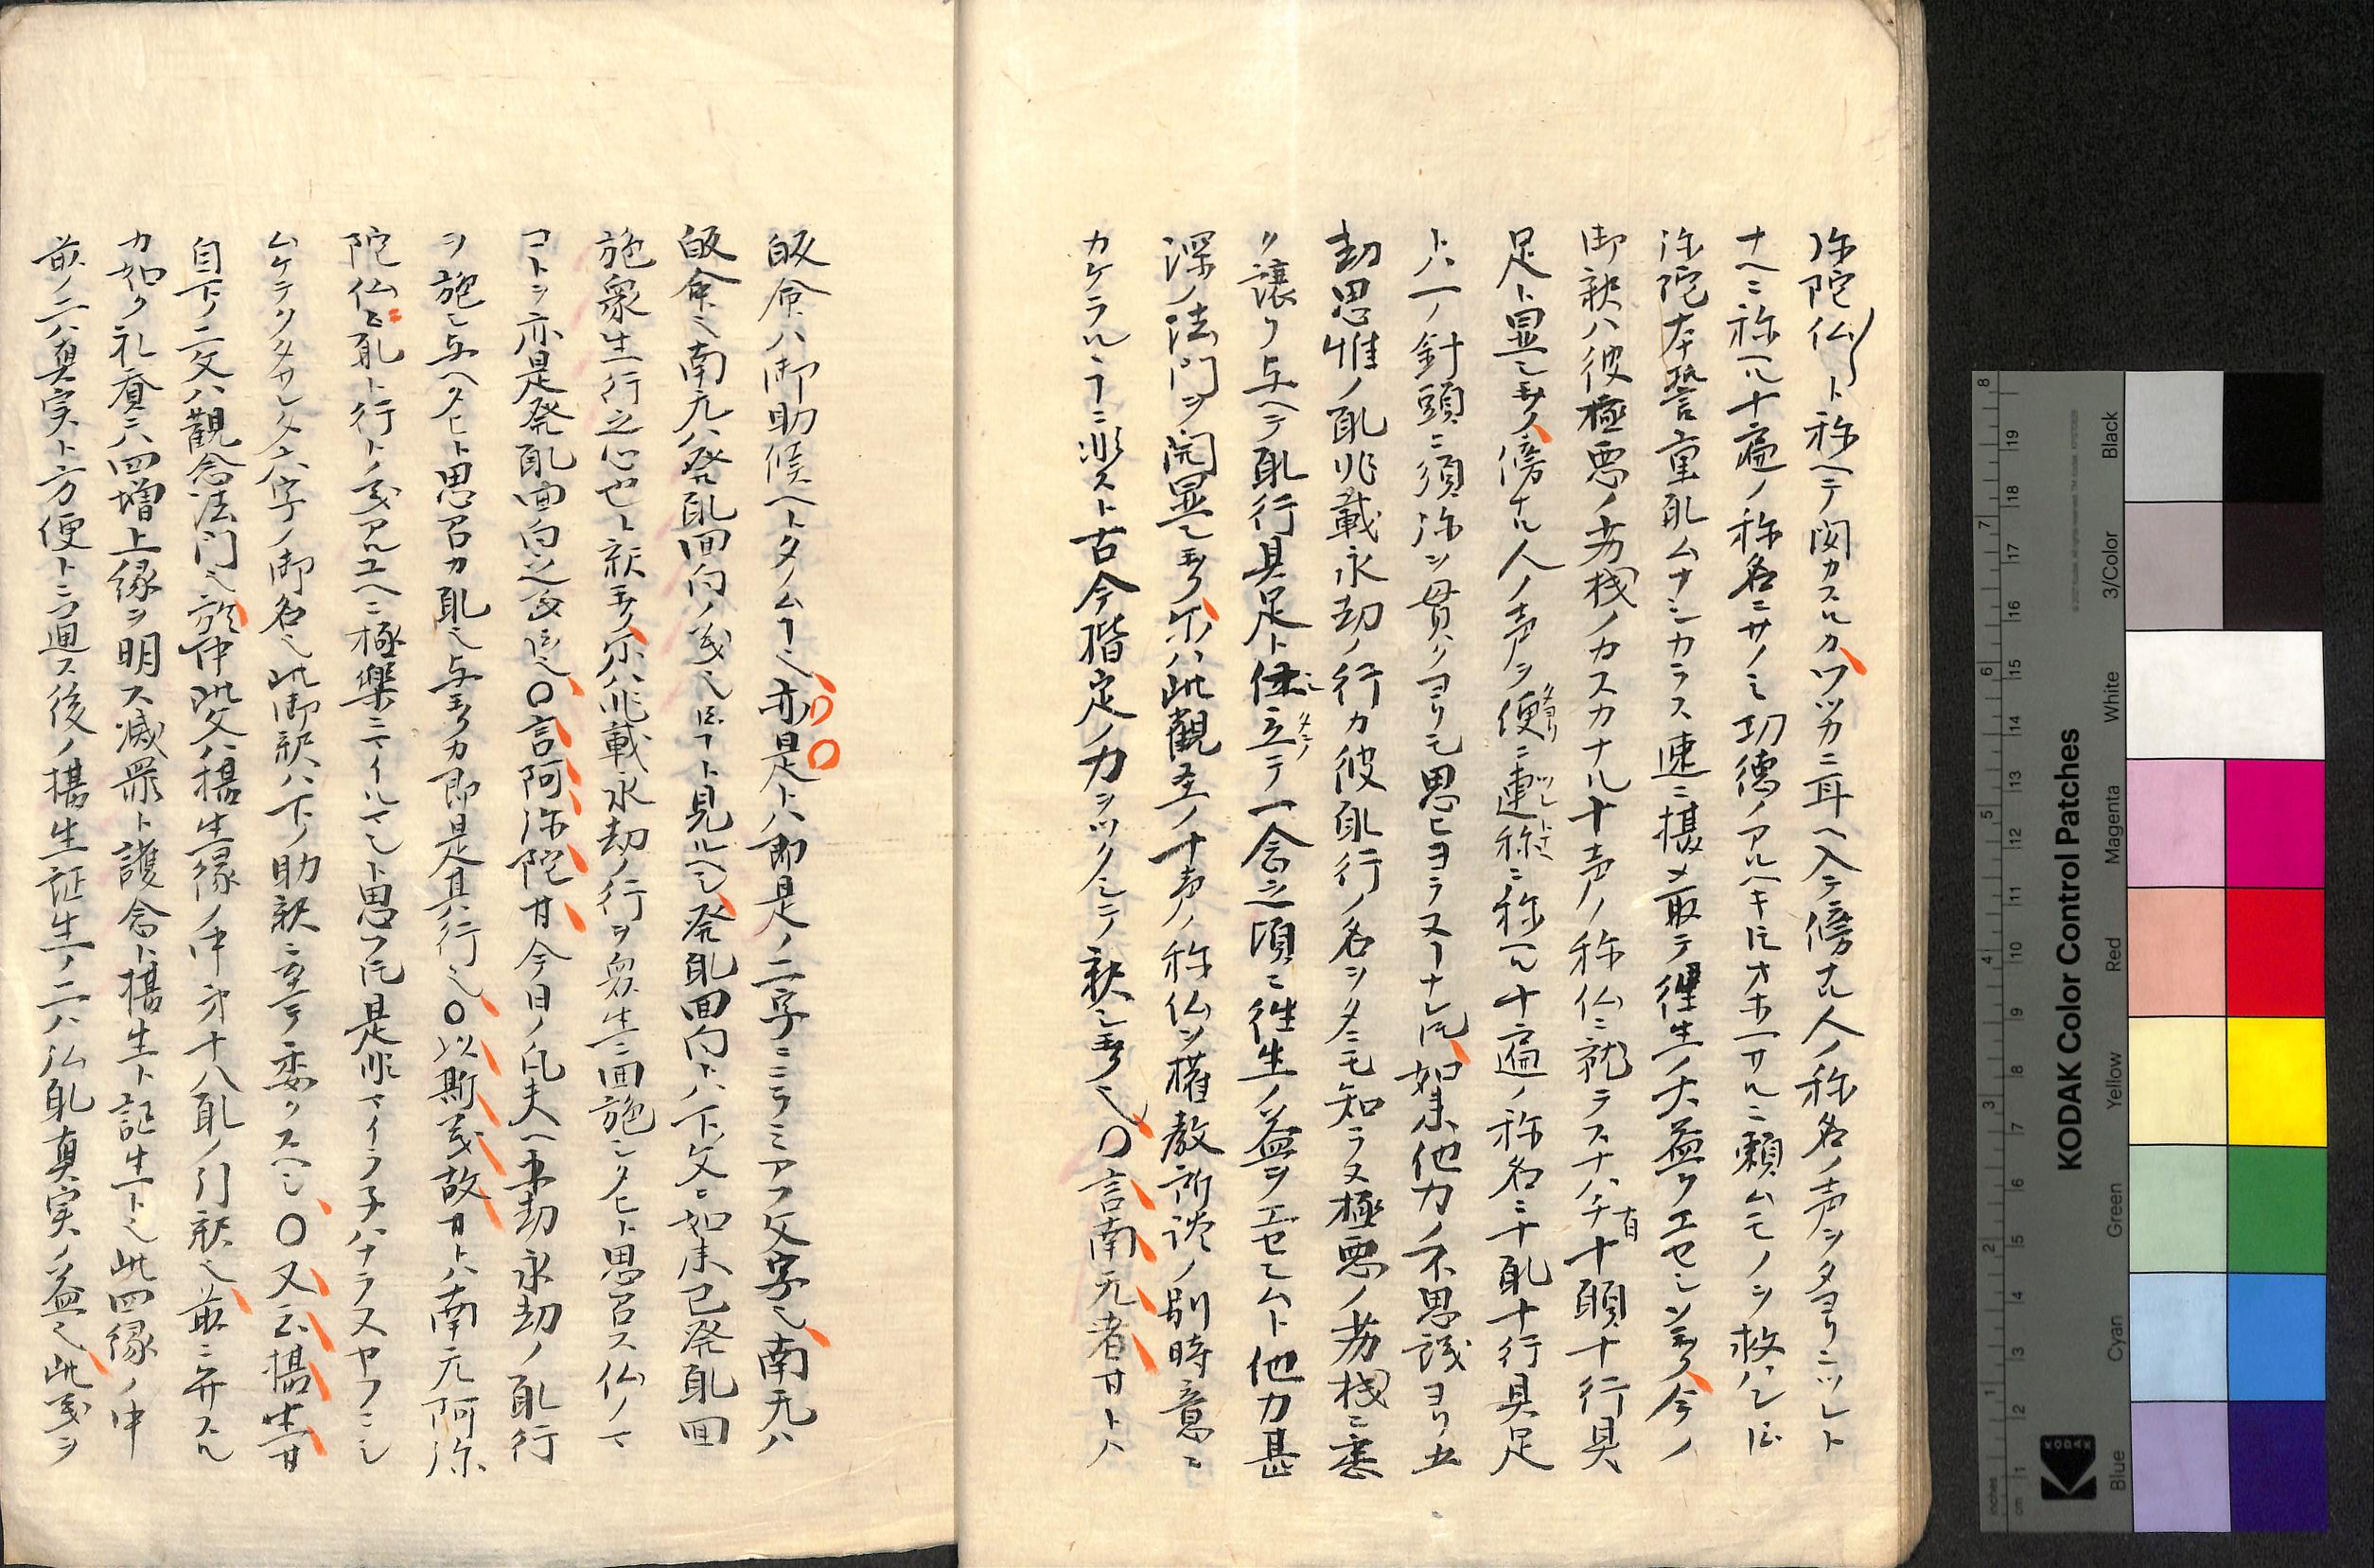 弥陀仏〱ト称ヘテ閑カスルカワツカニ耳ヘ入テ傍ナル人ノ称名ノ声ヲタヨリニツレト
ナヘニ称ヘル十遍ノ称名ニサノミ功徳ノアルヘキ𪜈オホヘサルニ頼ムモノヲ救ハレ𪜈
弥陀本誓重願ムナシカラス速ニ摂メ取テ往生ノ大益ヲエセシメ玉フ今ノ
御釈ハ彼極悪ノ劣機ノカスカナル十声ノ称仏ニ就ラスナハチ有十願十行具
足ト显シ玉フ傍ナル人ノ声ヲ便ニ連称ニ称ヘル十遍ノ称名ニ十願十行具足
トハ一ノ針頭ニ須弥ヲ貫ハクヨリモ思ヒヨラヌヿナレ𪜈如来他力ノ不思議ヨリ五
劫思惟ノ願兆載永劫ノ行カ彼願行ノ名ヲタニモ知ラヌ極悪ノ劣機ニ悉
ク譲リ与ヘテ願行具足ト仕立テ一念之頃ニ往生ノ益ヲエセシムト他力甚
深ノ法門ヲ開显シ玉フ尓ハ此觀至ノ十声ノ称仏ヲ権教所談ノ別時意ニ
カケラルヽヿニ非スト古今揩定ノ力ヲツクシテ釈シ玉フ也〇言南无者廿トハ
皈命ハ御助候ヘトタノムヿ也亦是トハ即是ノ二字ニニラミアフ文字也南无ハ
皈命也南无ハ発願回向ノ義也𪜈ヿト見ルヘシ発願回向トハ下文ニ如来已発願回
施衆生行之心也ト釈玉フ尓ハ兆載永劫ノ行ヲ衆生ニ回施シタヒト思召ス仏ノマ
コトヲ亦是発願回向之義𪜈也〇言阿弥陀廿今日ノ凡夫ヘ五劫永劫ノ願行
ヲ施シ与ヘタヒト思召カ願也与玉フカ即是其行也〇以斯義故廿トハ南无阿弥
陀仏ニ願ト行トノ義アルユヘニ極楽ニマイルマシト思フ𪜈是非マイラ子ハナラスヤフニシ
ムケテクタサレタ六字ノ御名也此御釈ハ下ノ助釈ニ至テ委クスヘシ〇又云摂生廿
自下二文ハ觀念法門也於中此文ハ摂生縁ノ中第十八願ノ引釈也並ニ弁スル
カ如ク礼賛ニハ四増上縁ヲ明ス滅罪ト護念ト摂生ト証生ト也此四縁ノ中
前ノ二ハ真実ト方便トニ通ス後ノ摂生証生ノ二ハ弘願真実ノ益也此義ヲ